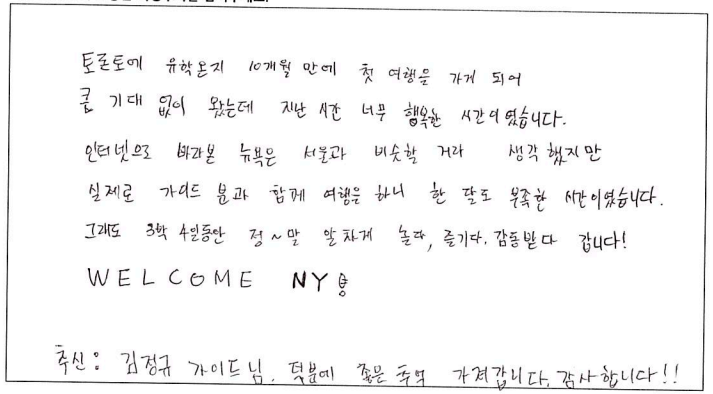 토론토에 유학온지 10개월 만에 첫 여행을 가게 되어
큼 기대 없이 왔는데 지난 시간 너무 행복한 시간이였습니다.
인터넷으로 바라본 뉴욕은 서울과 비슷할 거라 생각했지만
실제로 가이드 분과 함께 여행을 하니 한 달도 부족한 시간이였습니다.
그래도 3박 4일동안 정~말 알차게 놀다, 즐기다. 감동받다 갑니다!
WELCOME NY
추신: 김정규 가이드님. 덕분에 좋은 추억 가져갑니다. 감사합니다!!